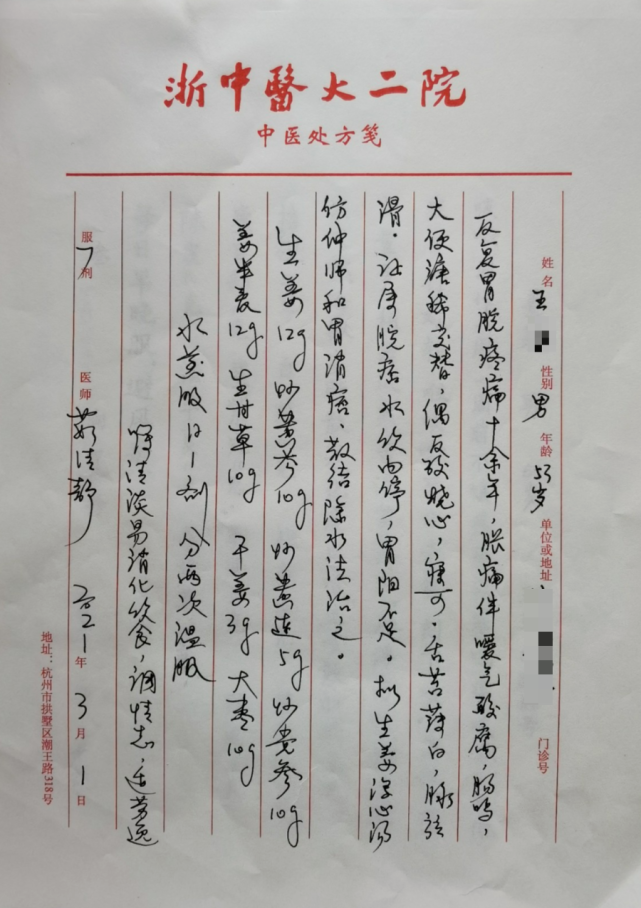 浙中醫大二院
中医处方笺
姓名 王 性别 男 年龄 53岁 单位或地址 门诊号
反复胃脘疼痛十余年，胀痛伴嗳气酸腐，肠鸣，
大便溏稀交替，偶反酸烧心，寐可。舌苔薄白，脉弦
滑。证属脘痞水饮内停，胃阳不足。拟生姜泻心汤
仿仲师和胃消痞、散结除水法治之。
生姜12g 炒黄芩10g 炒黄连5g 炒党参10g
姜半夏12g 生甘草10g 干姜3g 大枣10g
水煎服 日一剂 分两次温服
嘱清淡易消化饮食，调情志，适劳逸
服 7 剂 医师 清 二〇二1年3月1日
地址：杭州市拱墅区潮王路318号